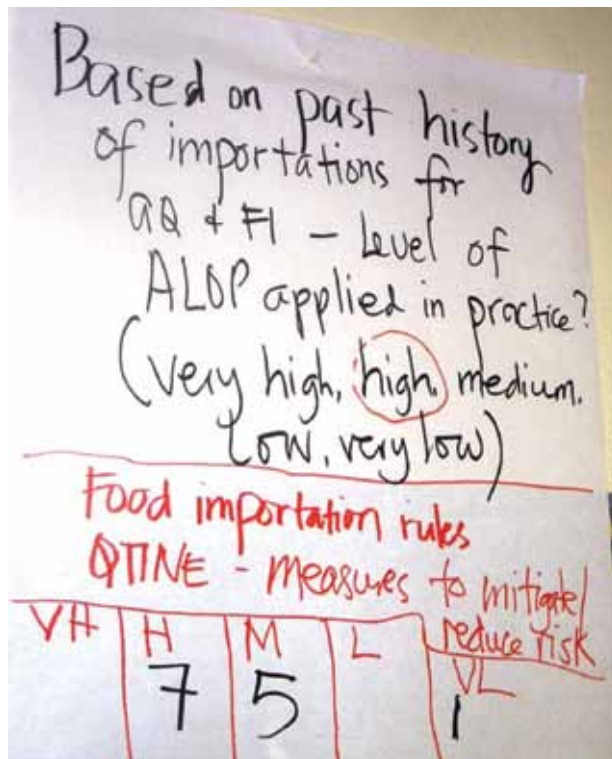 Based on past history
of importations for
aQ & FI – Level of
ALOP applied in practice?
(very high, high, medium.
Low, very low)
Food importation rules
QTINE - measures to mitigate/
reduce risk
VH H M L VL
7 5 1